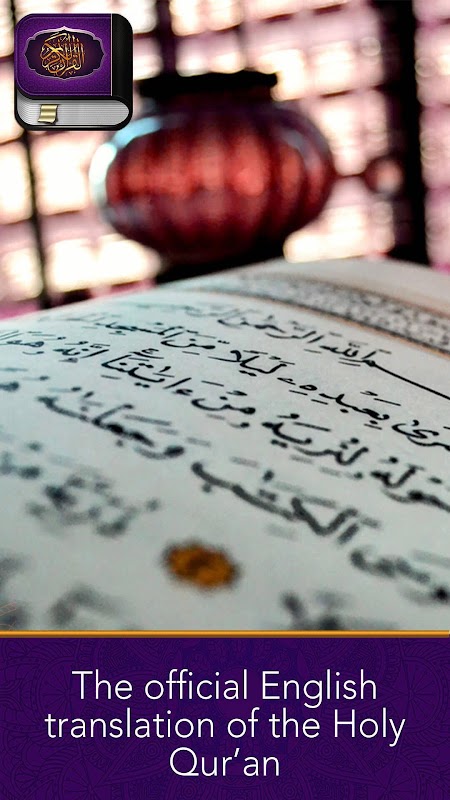 القرآن الكريم
ٱللَّهِ ٱلرَّحْمَٰنِ ٱلرَّحِيمِ
بِعَبْدِهِۦ لَيْلًا مِّنَ ٱلْمَسْجِدِ
لِنُرِيَهُۥ مِنْ ءَايَٰتِنَآ إِنَّهُۥ هُوَ
ٱلْكِتَٰبَ وَجَعَلْنَٰهُ
The official English
translation of the Holy
Qur’an